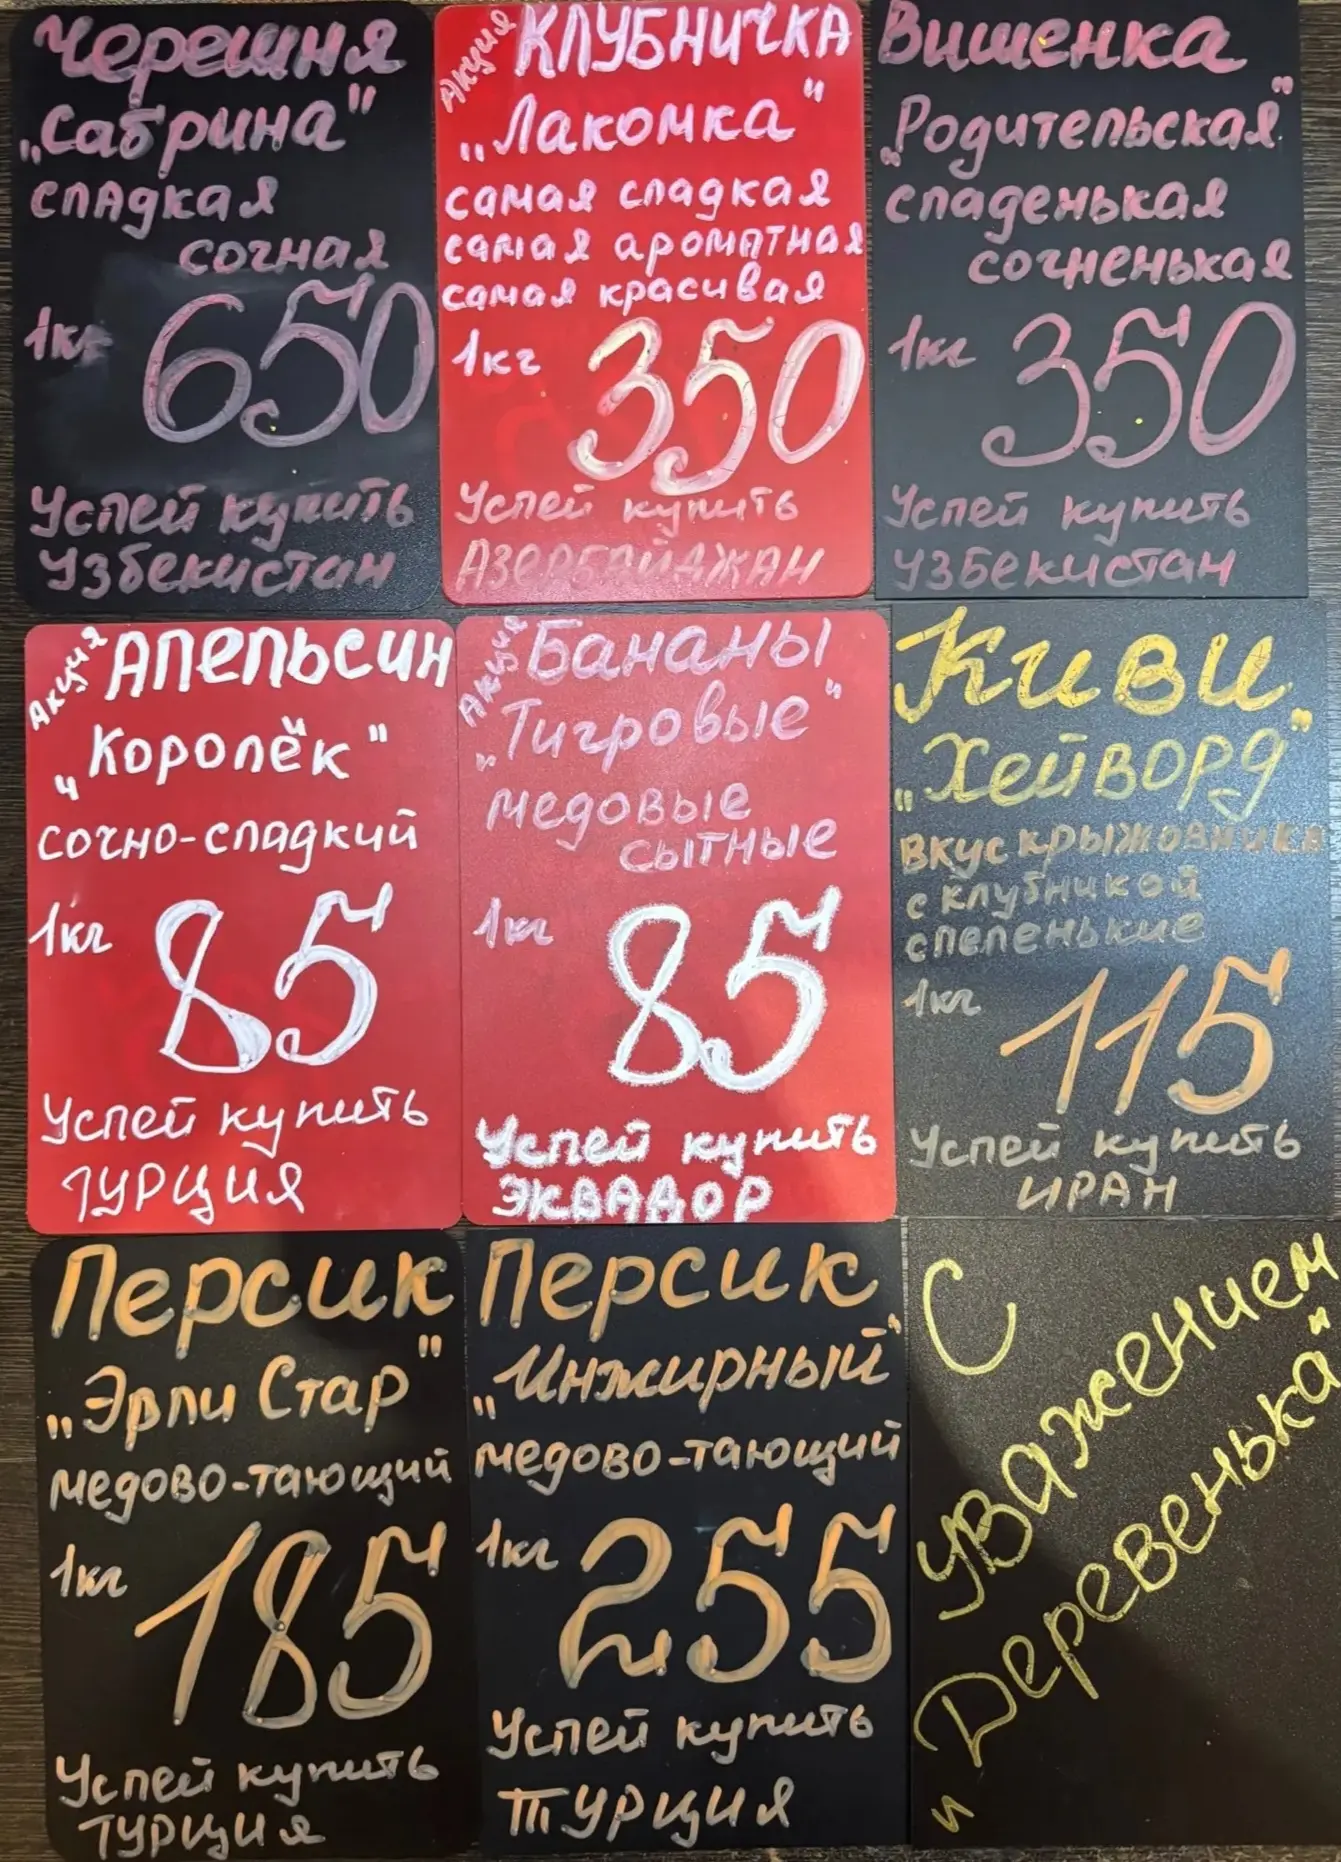 Черешня
„Сабрина"
сладкая
сочная
1кг 650
Успей купить
Узбекистан
Акция КЛУБНИЧКА
„Лакомка"
самая сладкая
самая ароматная
самая красивая
1кг 350
Успей купить
АЗЕРБАЙДЖАН
Вишенка
„Родительская"
сладенькая
сочненькая
1кг 350
Успей купить
Узбекистан
Акция АПЕЛЬСИН
„Королёк"
сочно-сладкий
1кг 85
Успей купить
ТУРЦИЯ
Акция Бананы
„Тигровые"
медовые
сытные
1кг 85
Успей купить
ЭКВАДОР
Киви
„Хейворд"
вкус крыжовника
с клубникой
спеленькие
1кг 115
Успей купить
ИРАН
Персик
„Эрли Стар"
медово-тающий
1кг 185
Успей купить
ТУРЦИЯ
Персик
„Инжирный"
медово-тающий
1кг 255
Успей купить
ТУРЦИЯ
С
уважением
„Деревенька"